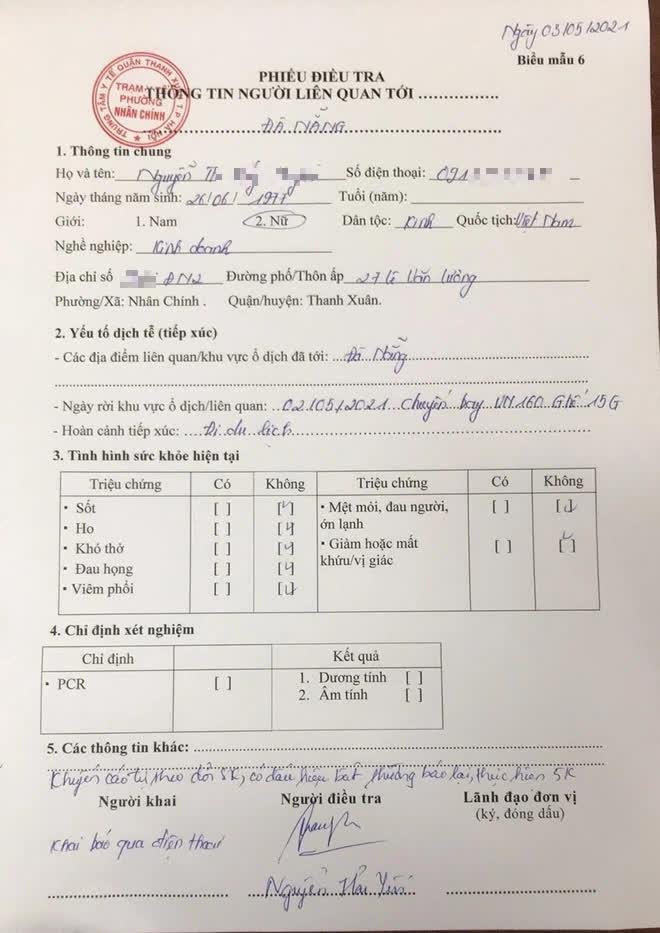 Ngày 03/05/2021
Biểu mẫu 6
PHIẾU ĐIỀU TRA
THÔNG TIN NGƯỜI LIÊN QUAN TỚI ..................
ĐÀ NẴNG
TRUNG TÂM Y TẾ QUẬN THANH XUÂN T.P HÀ NỘI
TRẠM Y TẾ
PHƯỜNG
NHÂN CHÍNH
1. Thông tin chung
Họ và tên: Nguyễn Số điện thoại: 091
Ngày tháng năm sinh: 26/06/1977 Tuổi (năm):
Giới: 1. Nam 2. Nữ Dân tộc: Kinh Quốc tịch: Việt Nam
Nghề nghiệp: Kinh doanh
Địa chỉ số ĐN2 Đường phố/Thôn ấp 27 Lê Văn Lương
Phường/Xã: Nhân Chính . Quận/huyện: Thanh Xuân.
2. Yếu tố dịch tễ (tiếp xúc)
- Các địa điểm liên quan/khu vực ổ dịch đã tới: Đà Nẵng
- Ngày rời khu vực ổ dịch/liên quan: 02/05/2021 chuyến bay VN160 Ghế 15G
- Hoàn cảnh tiếp xúc: Đi du lịch
3. Tình hình sức khỏe hiện tại
Triệu chứng Có Không Triệu chứng Có Không
• Sốt [ ] [✓] • Mệt mỏi, đau người, [ ] [✓]
ớn lạnh
• Ho [ ] [✓]
• Khó thở [ ] [✓] • Giảm hoặc mất [ ] [✓]
khứu/vị giác
• Đau họng [ ] [✓]
• Viêm phổi [ ] [✓]
4. Chỉ định xét nghiệm
Chỉ định Kết quả
• PCR [ ] 1. Dương tính [ ]
2. Âm tính [ ]
5. Các thông tin khác:
Khuyến cáo tự theo dõi SK, có dấu hiệu bất thường báo lại, thực hiện 5K
Người khai Người điều tra Lãnh đạo đơn vị
(ký, đóng dấu)
Khai báo qua điện thoại
Nguyễn Hải Yến